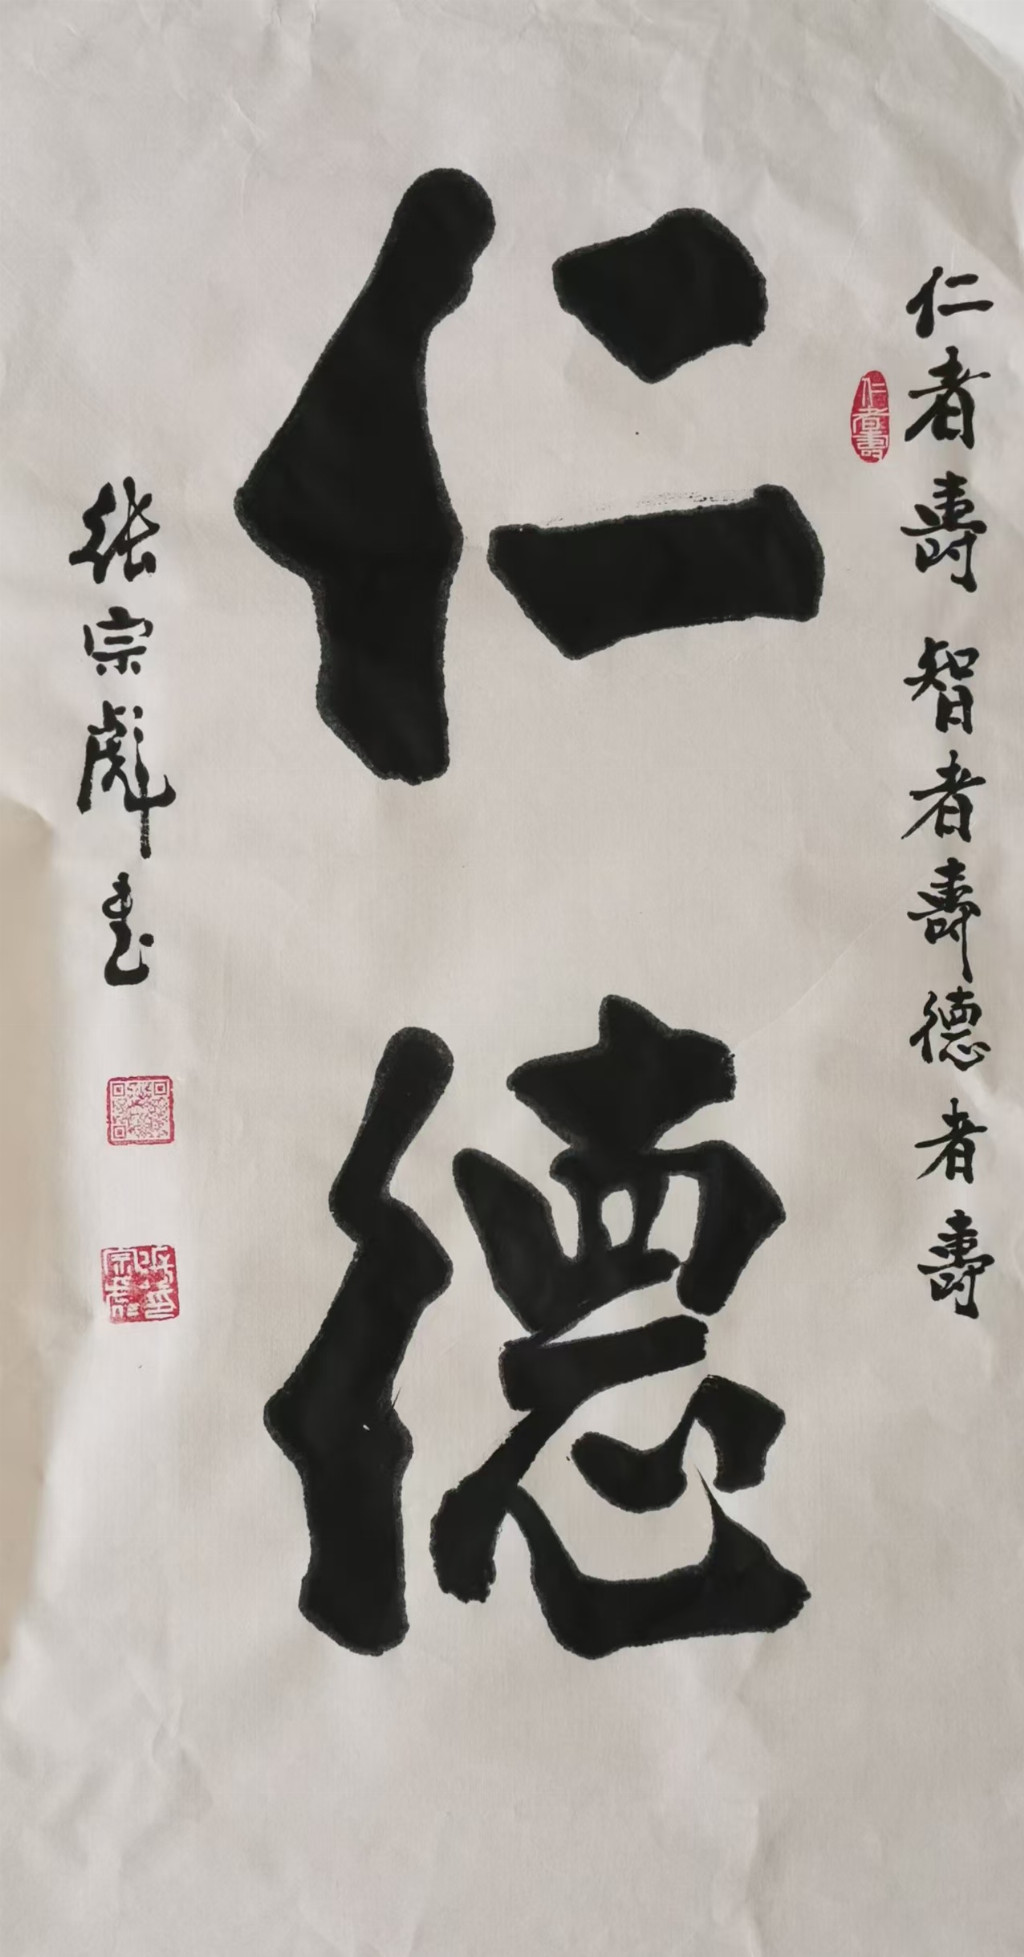 仁者壽 智者壽德者壽
仁者壽
仁德
张宗彪书